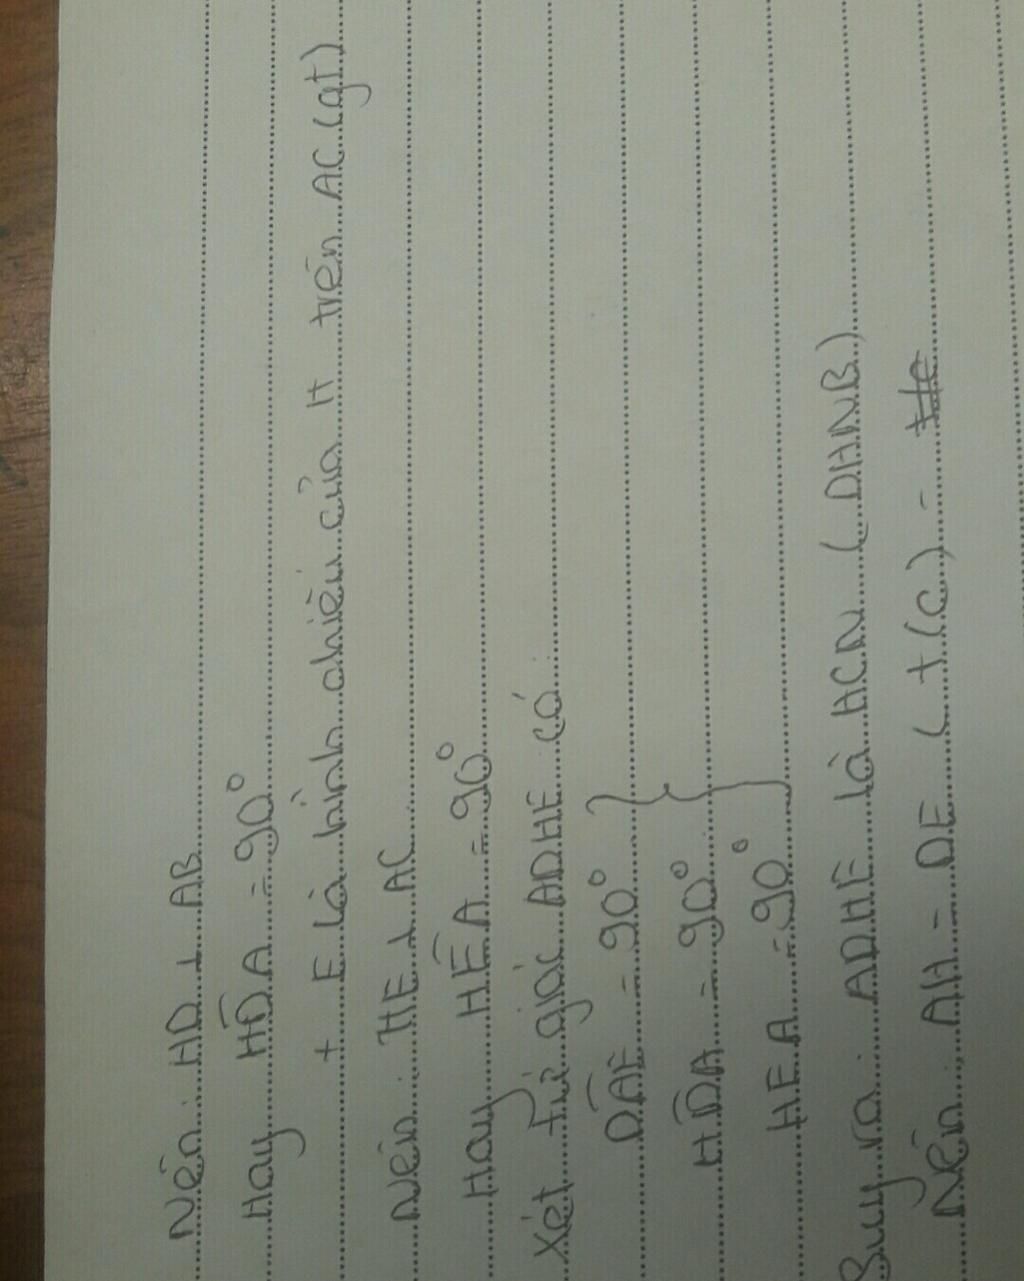 Nên: HD ⊥ AB
Hay HDA = 90°
+ E là hình chiếu của H trên AC (gt)
Nên: HE ⊥ AC
Hay HEA = 90°
Xét tứ giác ADHE có:
DAE = 90°
HDA = 90°
HEA = 90°
Suy ra: ADHE là HCN (DHNB)
Nên: AH = DE (t/c)